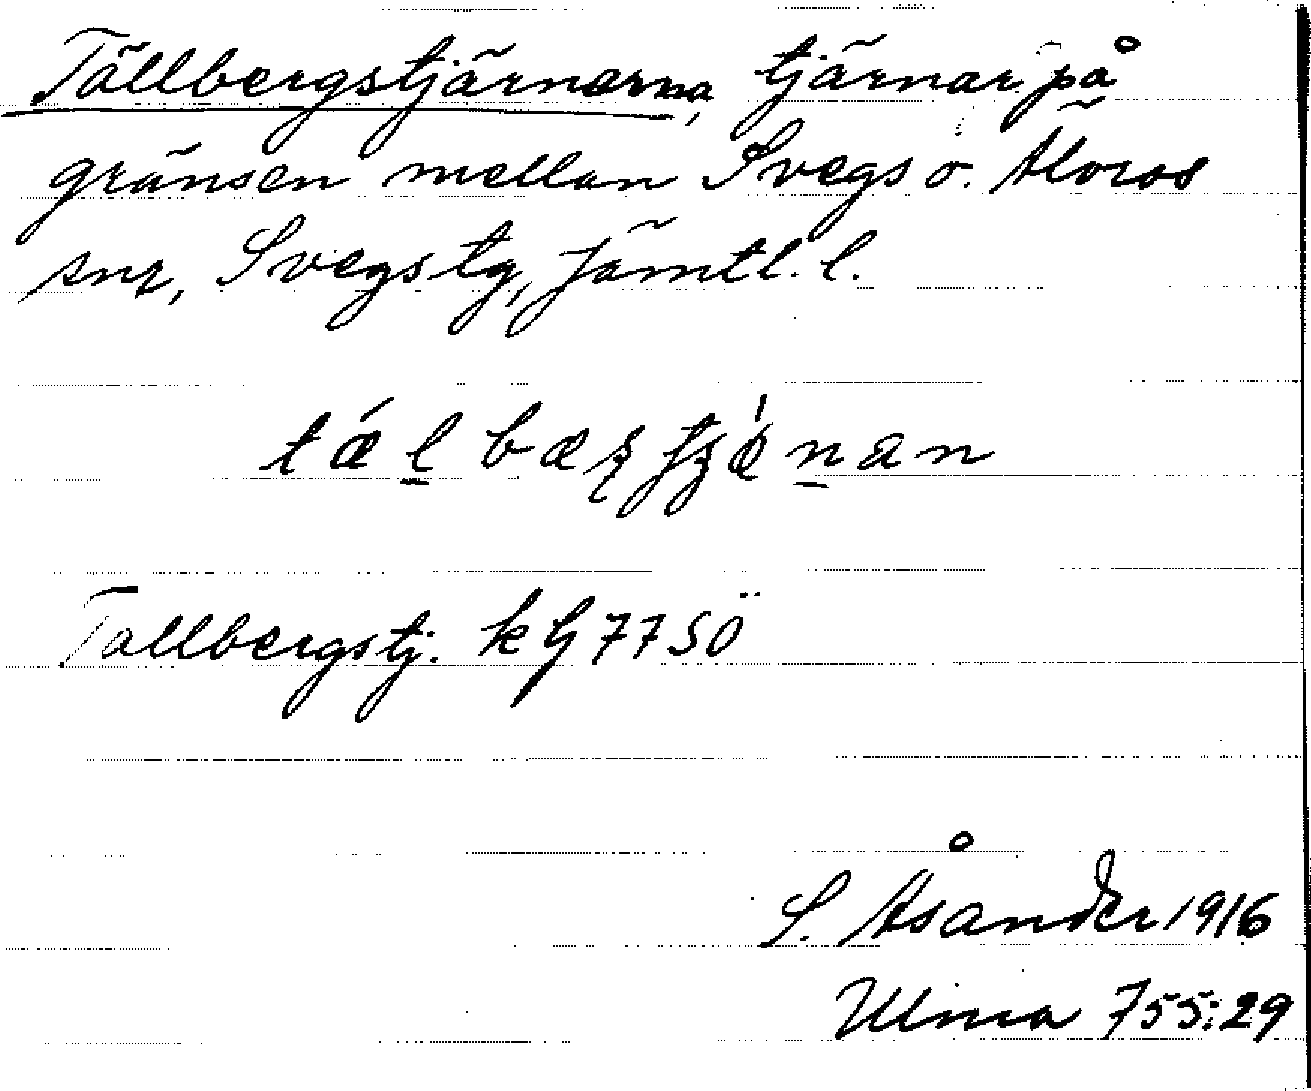 Tällbergstjärnarna, tjärnar på
gränsen mellan Svegs o. Älvros
snr, Svegs tg, Jämtl. l.
Tallbergstj. k Gj 77 SÖ
S. Åsånder 1916
Ulma 755:29